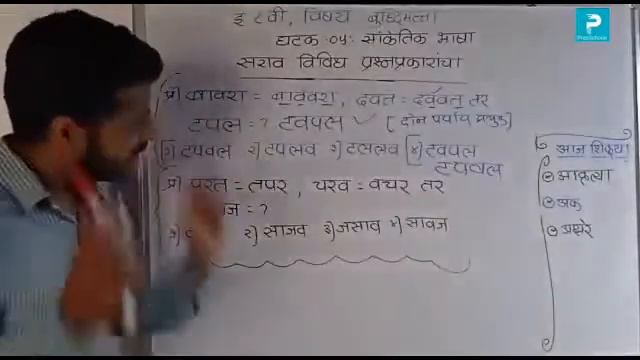 इ ८वी, विषय बुद्धिमत्ता
घटक: ०५: सांकेतिक भाषा
सराव विविध प्रश्नप्रकारांचा
प्र) = , दवत = दव्वत् तर
टपल = ? टवपल ✓ (दोन पर्याय अचूक)
१) टपवल २) टपलव ३) ४) टवपल
टपवल
प्र) परत = तपर, चरव = वचर तर
ज = ?
२) साजव ३) जसाव ४) सावज
आज शिकूया
आकृत्या
अंक
अक्षरे
P